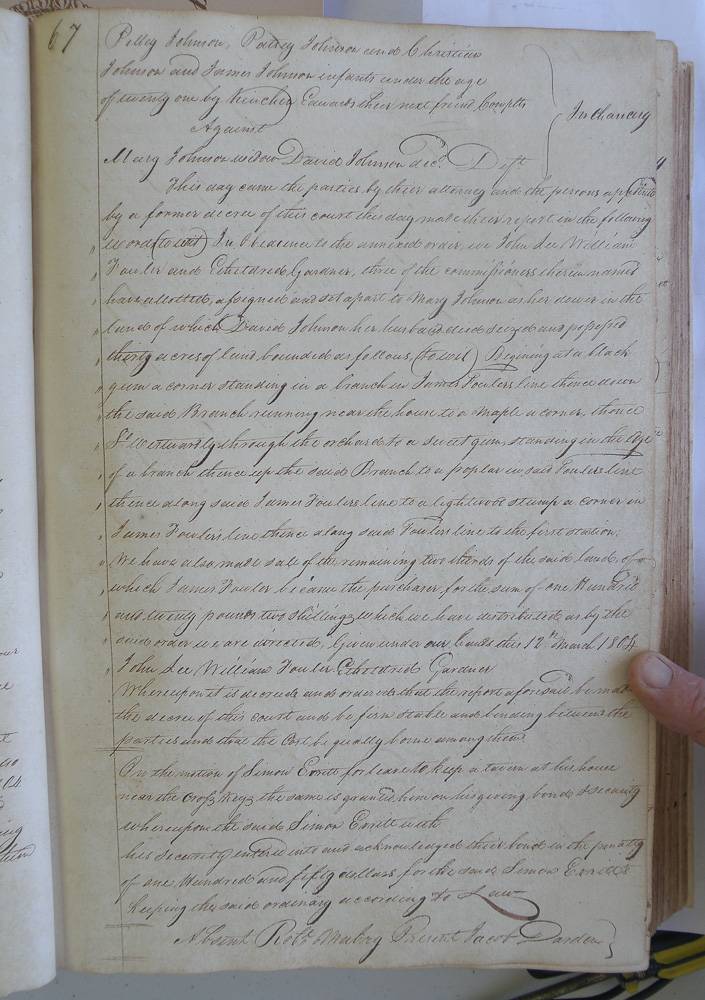 67
Polley Johnson, Patsey Johnson and Christian
Johnson and James Johnson infants under the age
of twenty one by Kinchen Edwards their next friend Complts
Against
In Chancery
Mary Johnson widow David Johnson decd. Deft
This day came the parties by their attorney and the persons appointed
by a former decree of this court this day made their report in the following
words (to wit) In Obedience to the annexed order, we John Lee William
Fowler and Etheldred Gardner, three of the commissioners therein named
have allotted, assigned and set apart to Mary Johnson as her dower in the
land of which David Johnson her husband died seized and possessed
thirty acres of land bounded as follows (to wit) Begining at a black
gum a corner standing in a branch in James Fowlers line thence down
the said Branch running near the house to a maple a corner, thence
So. Westwardly through the orchard to a sweet gum, standing in the edge
of a branch thence up the said Branch to a poplar in said Fowlers line
thence along said James Fowlers line to a lightwood stump a corner in
James Fowler's line thence along said Fowlers line to the first station.
We have also made sale of the remaining two thirds of the said land, of
which James Fowler became the purchaser for the sum of one Hundred
and twenty pounds two shillings which we have distributed as by the
said order we are directed. Given under our hands this 12th March 1804
John Lee, William Fowler Etheldred Gardner
Whereupon it is decreed and ordered that the report aforesaid be made
the decree of this court and be firm stable and binding between the
parties and that the Cost be equally borne among them
On the motion of Simon Everitt for leave to keep a tavern at his house
near the Cross Keys the same is granted him on his giving bond & security
whereupon the said Simon Everitt with
his security entered into and acknowledged their bond in the penalty
of one Hundred and fifty dollars for the said Simon Everitts
keeping the said ordinary according to Law
Absent Robt. Mabry Present Jacob Darden